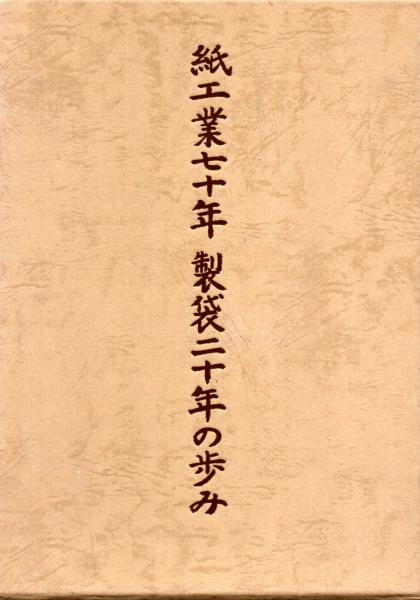 紙工業七十年 製袋二十年の歩み